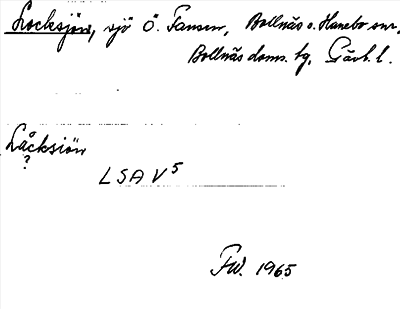 Locksjön, sjö Ö. Fansen, Bollnäs o. Hanebo snr,
Bollnäs doms. tg, Gävl. l.
Låcksiön
?
LSA V5
FW. 1965